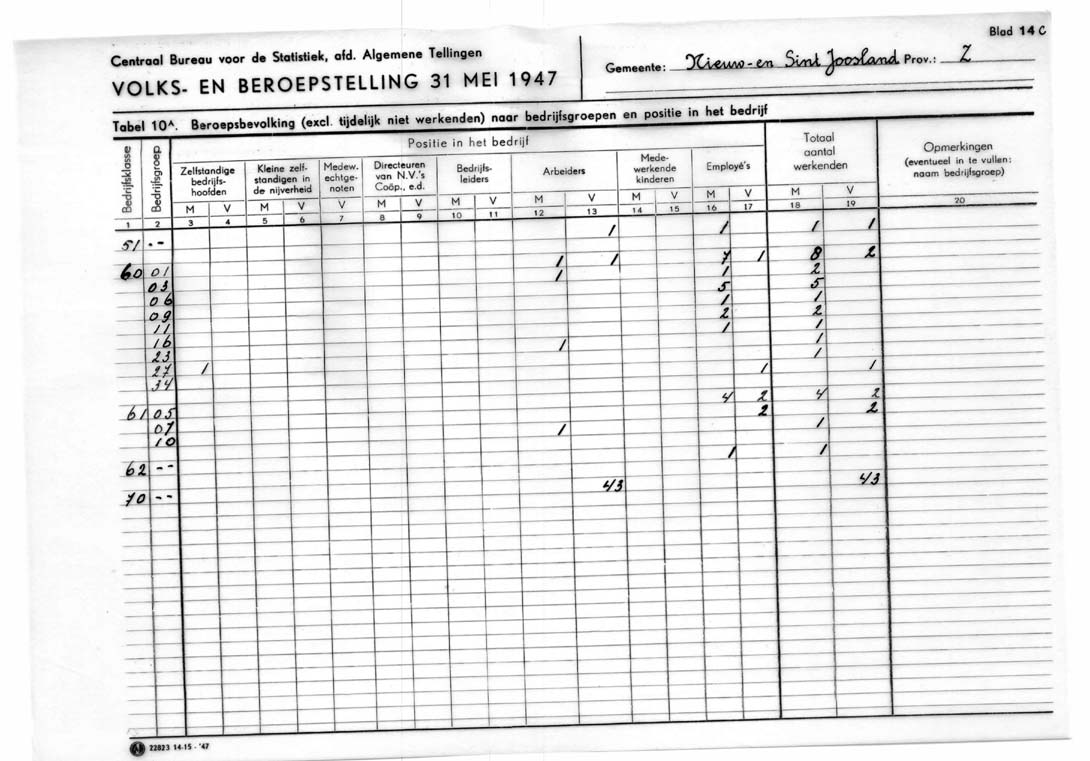 Blad 14 C
Centraal Bureau voor de Statistiek, afd. Algemene Tellingen
VOLKS- EN BEROEPSTELLING 31 MEI 1947
Gemeente: Nieuw- en Sint Joosland Prov.: Z
Tabel 10A. Beroepsbevolking (excl. tijdelijk niet werkenden) naar bedrijfsgroepen en positie in het bedrijf
Bedrijfsklasse
Bedrijfsgroep
Positie in het bedrijf
Zelfstandige
bedrijfs-
hoofden
Kleine zelf-
standigen in
de nijverheid
Medew.
echtge-
noten
Directeuren
van N.V.'s
Coöp., e.d.
Bedrijfs-
leiders
Arbeiders
Mede-
werkende
kinderen
Employé's
Totaal
aantal
werkenden
Opmerkingen
(eventueel in te vullen:
naam bedrijfsgroep)
M V M V V M V M V M V M V M V M V
1 2 3 4 5 6 7 8 9 10 11 12 13 14 15 16 17 18 19 20
51 -- 1 1 1 1
60 01 1 1 7 1 8 2
03 1 1 2
06 5 5
09 1 1
11 2 2
16 1 1
23 1 1
27 1 1
34 1 1
61 05 4 2 4 2
07 2 2
10 1 1
62 -- 1 1
70 -- 43 43
22823 14-15 - '47